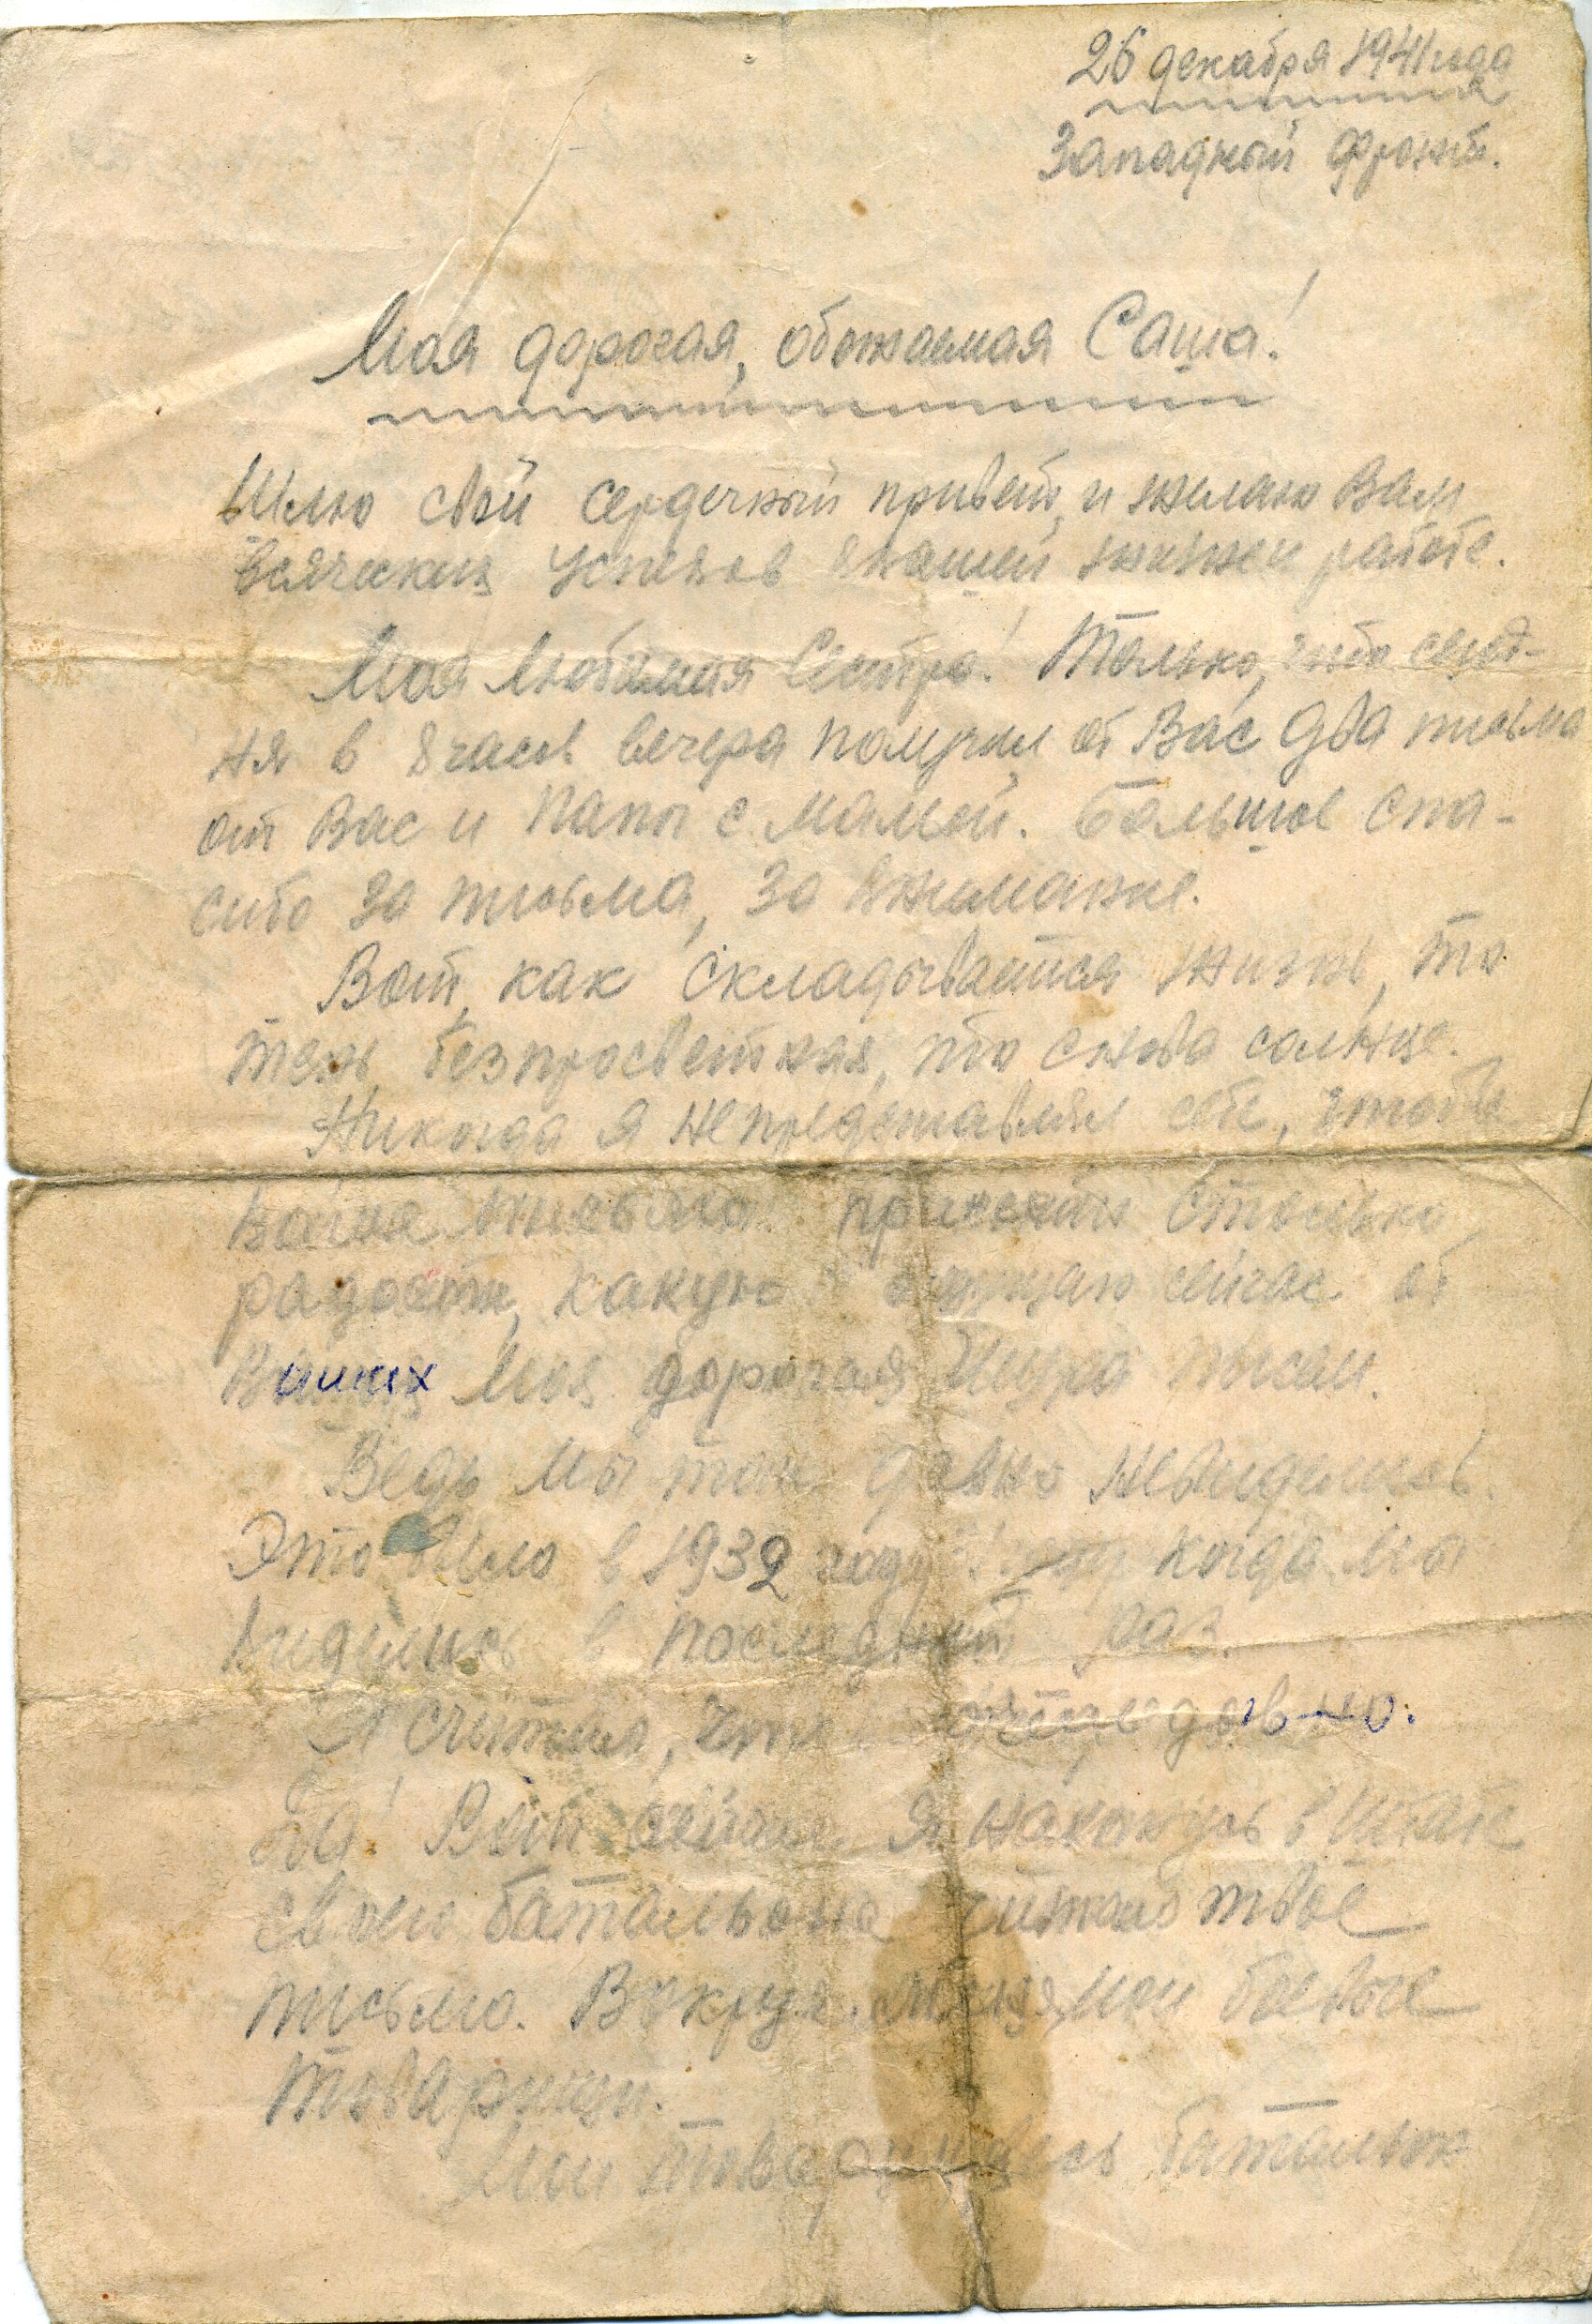 26 декабря 1941 года
Западный фронт.
Моя дорогая, обожаемая Саша!
Шлю свой сердечный привет, и желаю Вам
всяческих успехов в вашей жизни и работе.
Моя любимая Сестра! Только, что сегод-
ня в 8 часов вечера получил от Вас два письма
от Вас и папы с мамой. Большое спа-
сибо за письма, за внимание.
Вот, как складывается жизнь, то
тень безпросветная, то снова солнце.
Никогда я не представлял себе, чтобы
принести столько
радости, какую ощущаю сейчас от
Ваших моя дорогая Шура писем.
Ведь мы так давно невиделись.
Это было в 1932 году когда мы
виделись в последний раз.
Я считаю, что давно.
Да! Вот сейчас я нахожусь в штабе
своего батальона читаю твое
письмо. Вокруг меня мои боевые
товарищи.
Мои товарищи весь батальон